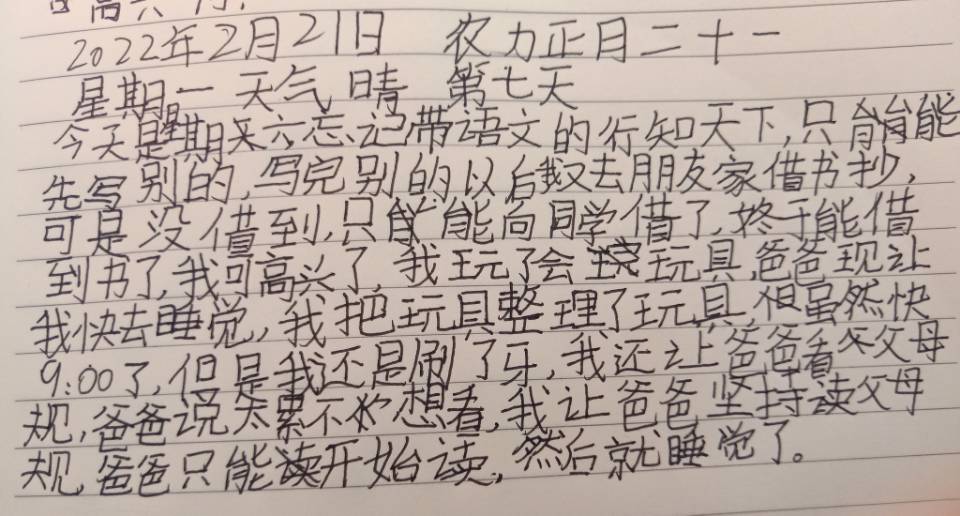 2022年2月21日 农力正月二十一
星期一 天气 晴 第七天
今天是星期天六忘记带语文的行知天下,只能
先写别的,写完别的以后我又去朋友家借书抄,
可是没借到,只能向同学借了,终于能借
到书了,我可高兴了,我玩了会玩具,爸爸现让
我快去睡觉,我把玩具整理了玩具,但虽然快
9:00了,但是我还是刷了牙,我还让爸爸看父母
规,爸爸说太累不想看,我让爸爸坚持读父母
规,爸爸只能开始读,然后就睡觉了。